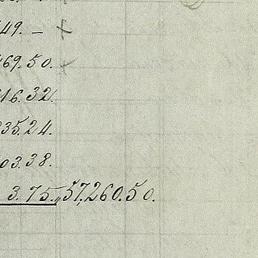 49. – +
469.50. x
16.32.
35.24.
03.38.
3.75. " 57,260.50.